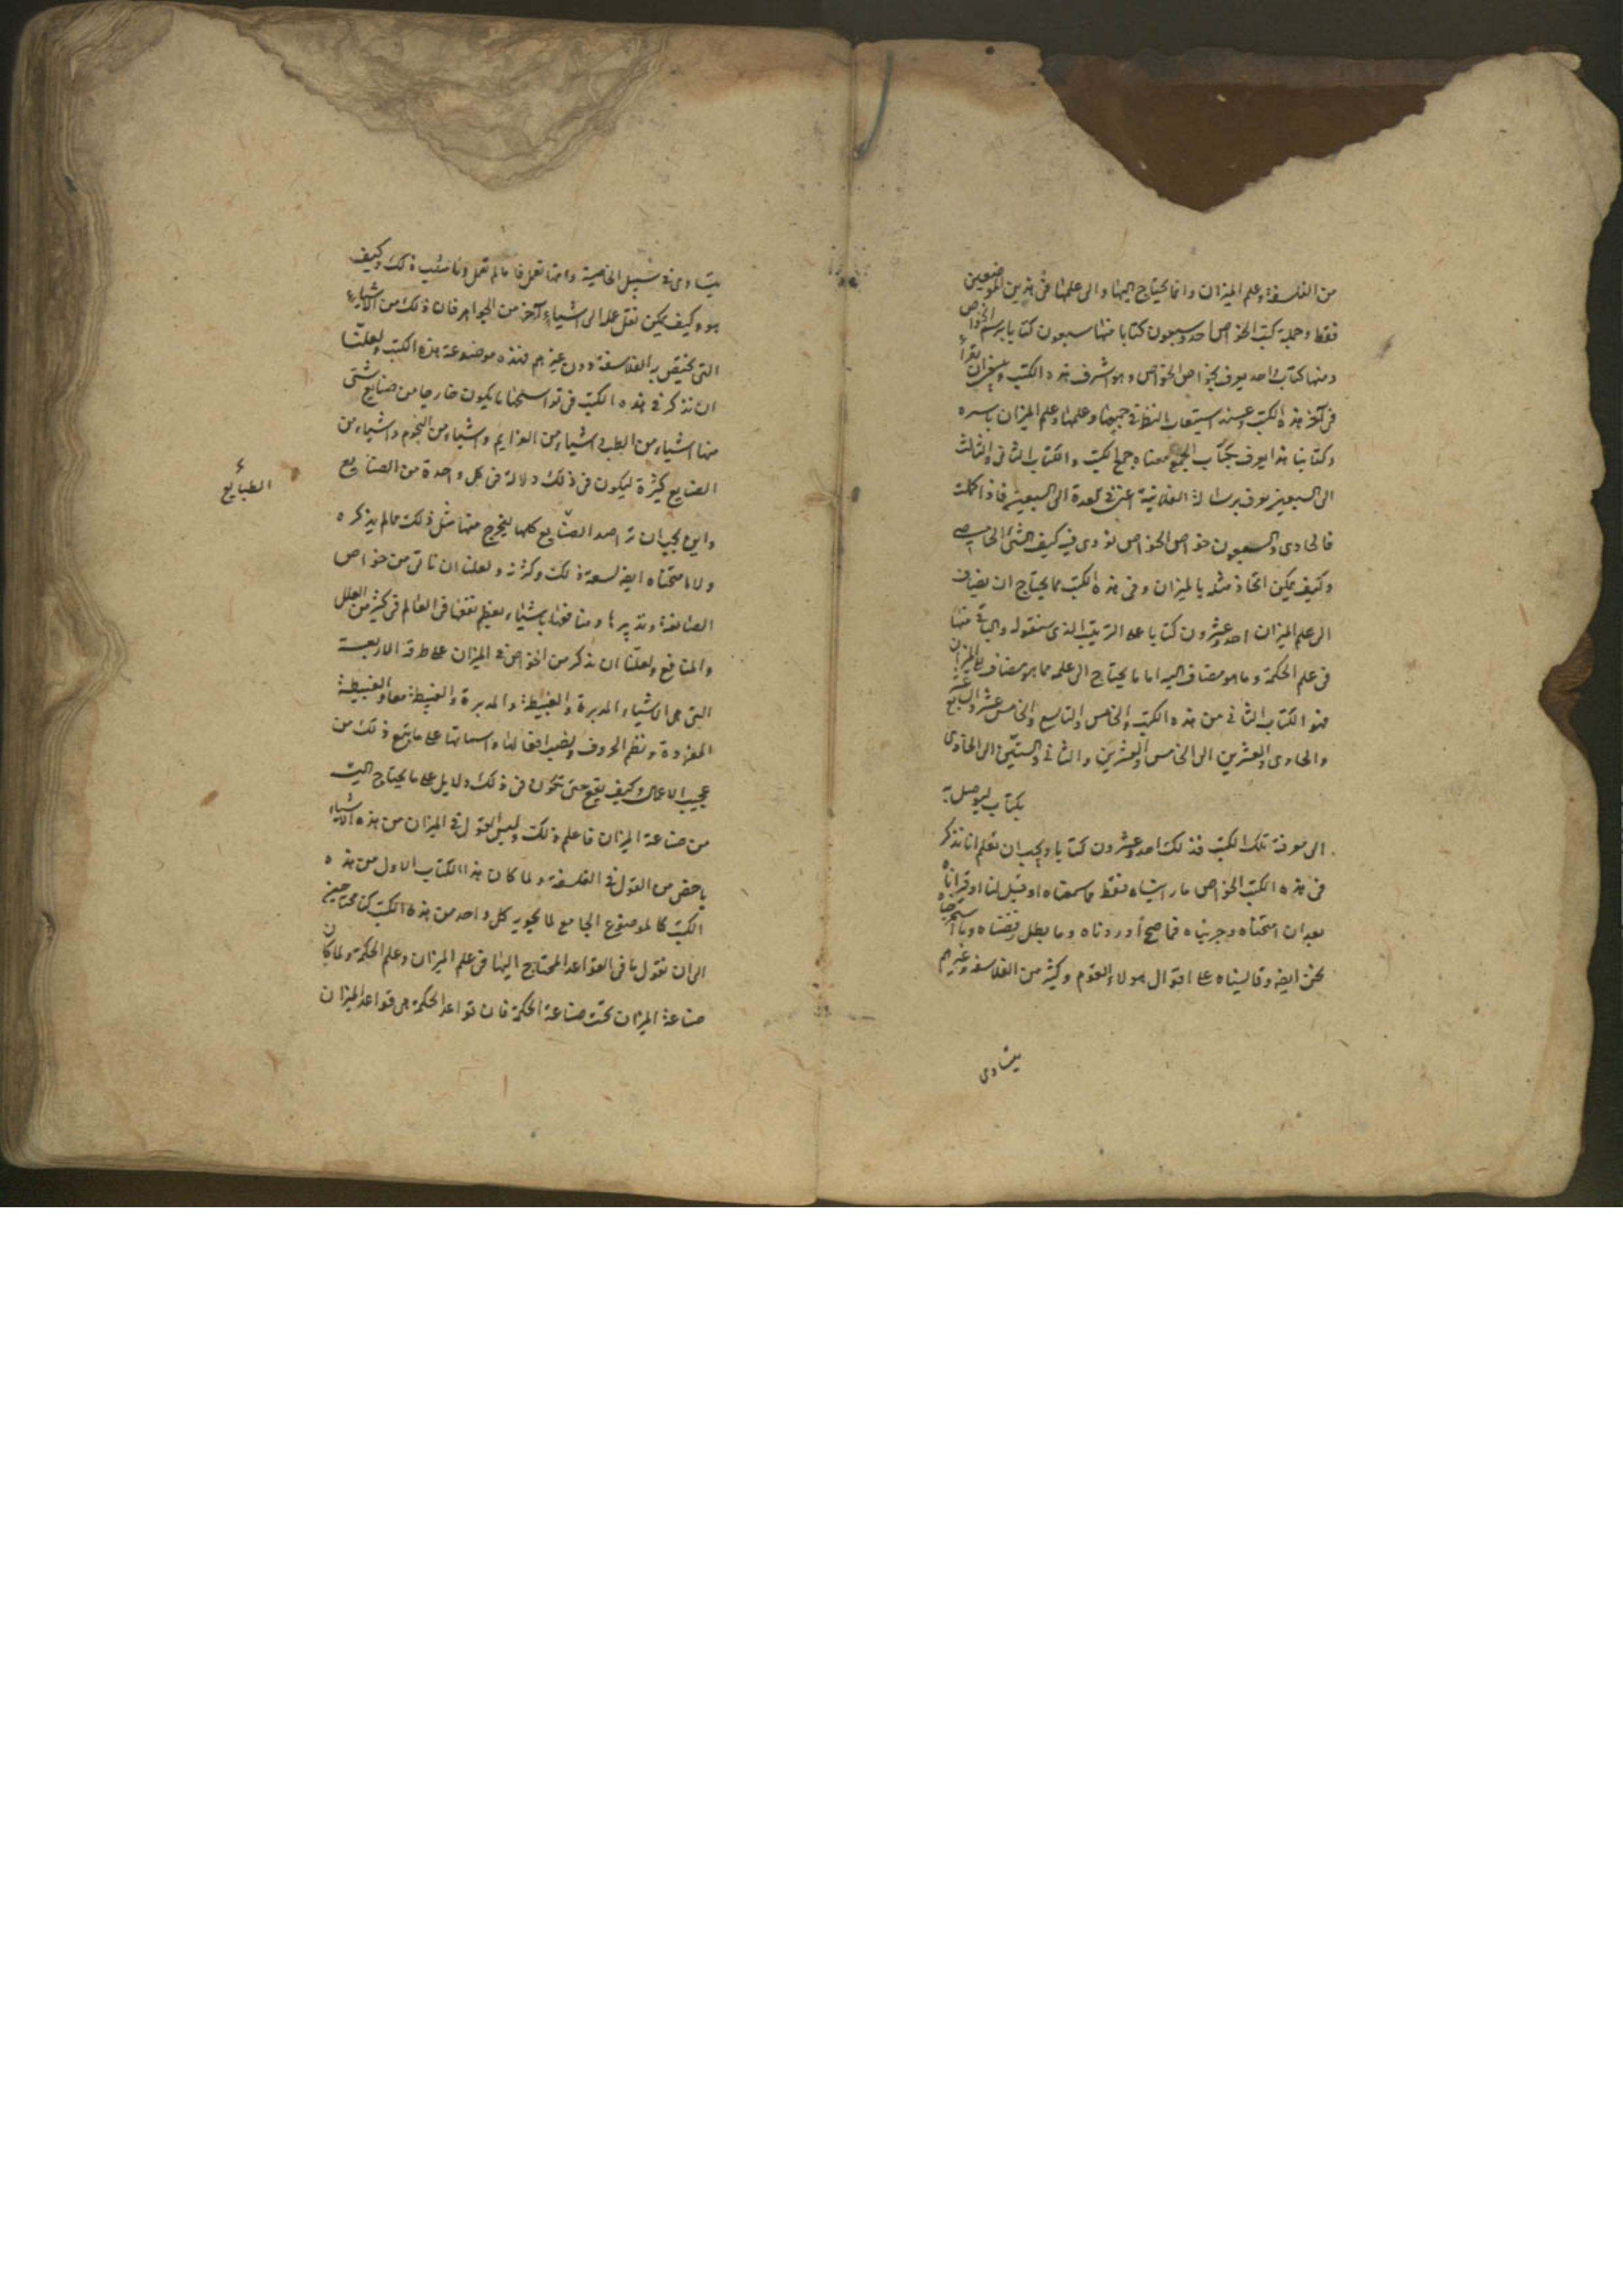 من الفلسفة وعلم الميزان وانما يحتاج اليها والى علمها فى هذين الموضعين
فقط وجملة كتب الخواص احد وسبعون كتابا منها سبعون كتابا برسم الخواص
ومنها كتاب واحد يعرف بخواص الخواص وهو اشرف هذه الكتب وينبغى ان يقرأ
فى آخر هذه الكتب وعند استيعاب النظر فى جميعها وعلمها وعلم الميزان باسره
وكتابنا هذا يعرف بكتاب الجمع معناه جمع الكتب والكتاب الثانى والثالث
الى السبعين يعرف برسالة الفلانية اعنى فى العدة الى السبعين فاذا كملت
فالحادى والسبعون خواص الخواص نؤدى فيه كيف الشئ الخاصى
وكيف يمكن اتخاذ مثله بالميزان وفى هذه الكتب مما يحتاج ان يضاف
الى علم الميزان احد وعشرون كتابا على الترتيب الذى سنقوله والباقى منها
فى علم الحكمة وما هو مضاف اليه اما ما يحتاج الى علمه مما هو مضاف الى الميزان
فهو الكتاب الثانى من هذه الكتب والخامس والتاسع والخامس عشر والسابع عشر
والحادى والعشرين الى الخامس والعشرين والثانى والستين الى الحادى
بكتاب ليوصل به
الى معرفة تلك الكتب فذلك احد وعشرون كتابا ويجب ان تعلم انا نذكر
فى هذه الكتب الخواص ما رايناه فقط ما سمعناه او قيل لنا او قراناه
بعد ان امتحناه وجربناه فما صح أوردناه وما بطل رفضناه وما استخرجناه
نحن ايضا وقايسناه على اقوال هولاء القوم وكثير من الفلاسفة وغيرهم
يتادى
يتادى فى سبيل الخاصية وانها تعمل فا ما لم تعمل وما سبب ذلك وكيف
هو وكيف يمكن نقل علله الى اشياء آخر من الجواهر فان ذلك من الاشياء
التى يختص به الفلاسفة دون غيرهم فهذه موضوعة هذه الكتب ولعلنا
ان نذكر فى هذه الكتب فى تو اسطحنا ما يكون خارجا من صنايع شتى
منها اشياء من الطب واشياء من العزايم واشياء من النجوم واشياء من
الصنايع كثيرة ليكون فى ذلك دلالة فى كل واحدة من الصنايع
الطبايع
واين يجب ان ترصد الصنايع كلها ليخرج منها مثل ذلك مما لم يذكره
ولا امتحناه ايضا لسعة ذلك وكثرته ولعلنا ان ناتى من خواص
الصانعة وتدبيرها ومنافعها باشياء يعظم نفعها فى العالم فى كثير من العلل
والمنافع ولعلنا ان نذكر من الخواص فى الميزان على طرقه الاربعة
التى هى الاشياء المدبرة والغبيطة والمدبرة والغبيطة معا والغبيطة
المفردة ونظم الحروف ونصب افعالها واسمائها على ما يتبع ذلك من
عجيب الاعمال وكيف يقع حتى تكون فى ذلك دلايل على ما يحتاج اليه
من صناعة الميزان فاعلم ذلك وليس القول فى الميزان من هذه الاشياء
باخص من القول فى الفلسفة ولما كان هذا الكتاب الاول من هذه
الكتب كالموضوع الجامع لما يحويه كل واحد من هذه الكتب كنا محتاجين
الى ان نقول ما فى القواعد المحتاج اليها فى علم الميزان وعلم الحكمة ولما كان
صناعة الميزان تحت صناعة الحكمة فان قواعد الحكمة هى قواعد الميزان